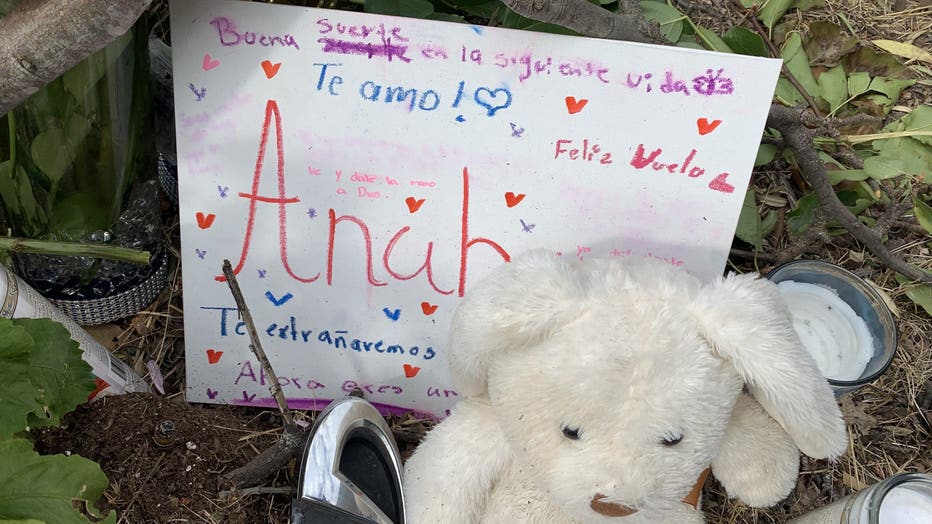 Buena suerte en la siguiente vida
Te amo!
Feliz Vuelo
Anah
Ve y dale la mano
a Dios.
Te extrañaremos
Ahora eres un